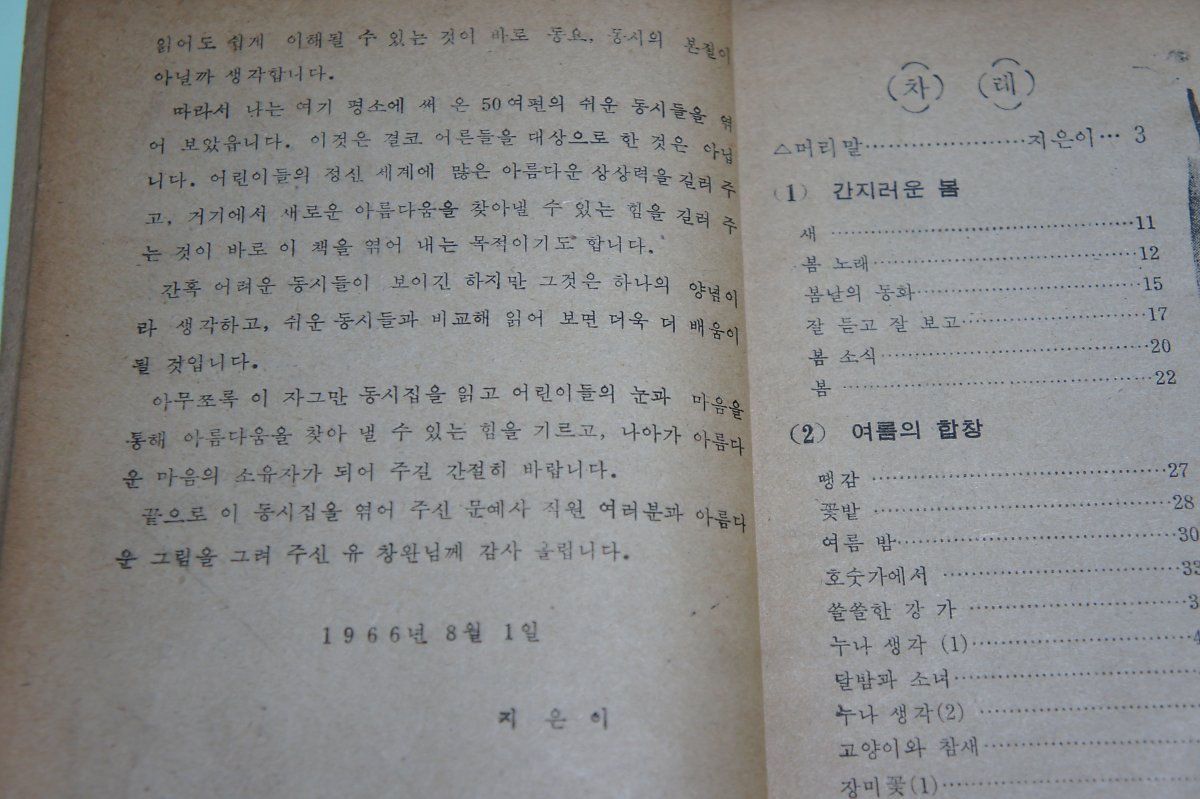 읽어도 쉽게 이해될 수 있는 것이 바로 동요, 동시의 본질이
아닐까 생각합니다.
따라서 나는 여기 평소에 써 온 50여편의 쉬운 동시들을 엮
어 보았읍니다. 이것은 결코 어른들을 대상으로 한 것은 아닙
니다. 어린이들의 정신 세계에 많은 아름다운 상상력을 길러 주
고, 거기에서 새로운 아름다움을 찾아낼 수 있는 힘을 길러 주
는 것이 바로 이 책을 엮어 내는 목적이기도 합니다.
간혹 어려운 동시들이 보이긴 하지만 그것은 하나의 양념이
라 생각하고, 쉬운 동시들과 비교해 읽어 보면 더욱 더 배움이
될 것입니다.
아무쪼록 이 자그만 동시집을 읽고 어린이들의 눈과 마음을
통해 아름다움을 찾아 낼 수 있는 힘을 기르고, 나아가 아름다
운 마음의 소유자가 되어 주길 간절히 바랍니다.
끝으로 이 동시집을 엮어 주신 문예사 직원 여러분과 아름다
운 그림을 그려 주신 유 창완님께 감사 올립니다.
1966년 8월 1일
지 은 이
(차) (례)
△머리말……………………지은이… 3
(1) 간지러운 봄
새 ……………………………………11
봄 노래………………………………12
봄날의 동화…………………………15
잘 듣고 잘 보고……………………17
봄 소식………………………………20
봄 ……………………………………22
(2) 여름의 합창
땡감 …………………………………27
꽃밭 …………………………………28
여름 밤………………………………30
호숫가에서 …………………………33
쓸쓸한 강 가 ………………………3
누나 생각 (1)………………………4
달밤과 소녀…………………………
누나 생각(2) ………………………
고양이와 참새………………………
장미꽃(1)……………………………